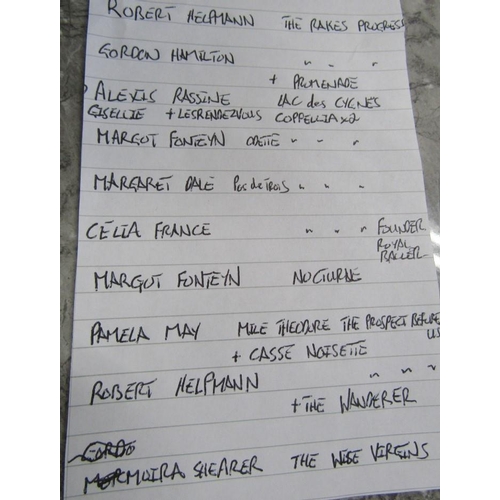 ROBERT HELPMANN THE RAKES PROGRESS
GORDON HAMILTON " " "
+ PROMENADE
ALEXIS RASSINE LAC des CYGNES
GISELLIE + LESRENDEZVOUS COPPELLIA x2
MARGOT FONTEYN ODETTE " " "
MARGARET DALE Pas de Trois " " "
CELIA FRANCE " " " FOUNDER
ROYAL
BALLET
MARGOT FONTEYN NOCTURNE
PAMELA MAY MLLE THEODORE THE PROSPECT BEFORE
US
+ CASSE NOISETTE
ROBERT HELPMANN " " "
+ THE WANDERER
GORDO
MOIRA SHEARER THE WISE VIRGINS